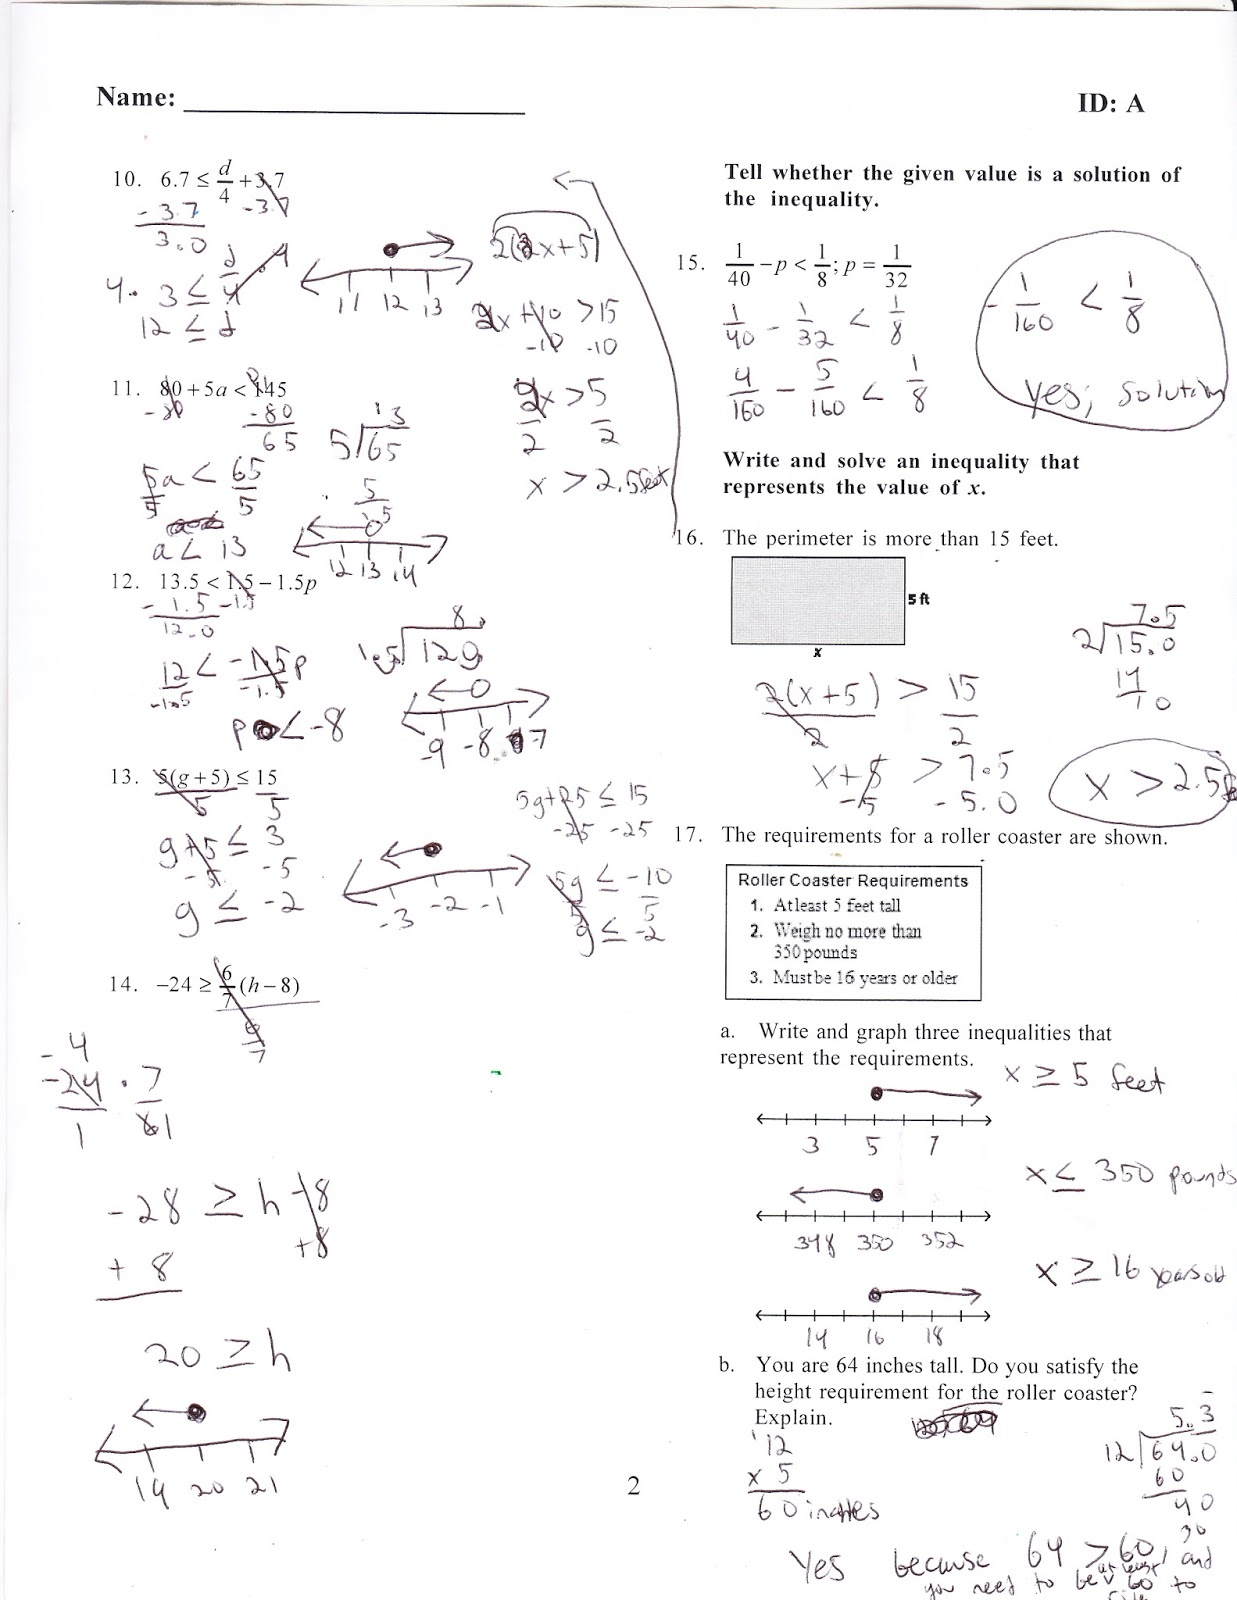 Name:
ID: A
10. 6.7 ≤ d/4 + 3.7
- 3.7 -3.7
3.0
4. 3 ≤ d/4 . 4
12 ≤ d
11 12 13
2(2x+5)
2x + 10 > 15
-10 -10
2x > 5
2 2
x > 2.5 feet
11. 80 + 5a < 145
- 80 -80
65
13
5)65
5
15
5a < 65
5 5
a < 13
12 13 14
12. 13.5 < 1.5 − 1.5p
- 1.5 -1.5
12.0
12 < -1.5p
-1.5 -1.5
8.
1.5)120
p < -8
-9 -8 -7
13. 5(g + 5) ≤ 15
5 5
g+5 ≤ 3
-5 -5
g ≤ -2
-3 -2 -1
5g+25 ≤ 15
-25 -25
5g ≤ -10
5 5
g ≤ -2
14. −24 ≥ 6/7 (h − 8)
6/7
-4
-24 . 7
1 61
-28 ≥ h -8
+ 8 +8
20 ≥ h
19 20 21
Tell whether the given value is a solution of
the inequality.
15. 1/40 − p < 1/8; p = 1/32
1/40 - 1/32 < 1/8
4/160 - 5/160 < 1/8
- 1/160 < 1/8
Yes; solution
Write and solve an inequality that
represents the value of x.
16. The perimeter is more than 15 feet.
5 ft
x
2(x+5) > 15
2 2
x+5 > 7.5
-5 - 5.0
7.5
2)15.0
14
10
x > 2.5
17. The requirements for a roller coaster are shown.
Roller Coaster Requirements
1. At least 5 feet tall
2. Weigh no more than
350 pounds
3. Must be 16 years or older
a. Write and graph three inequalities that
represent the requirements.
x ≥ 5 feet
3 5 7
x ≤ 350 pounds
348 350 352
x ≥ 16 years old
14 16 18
b. You are 64 inches tall. Do you satisfy the
height requirement for the roller coaster?
Explain.
12
x 5
60 inches
5.3
12)64.0
60
40
36
Yes because 64 > 60, and
you need to be at least 60 to
2